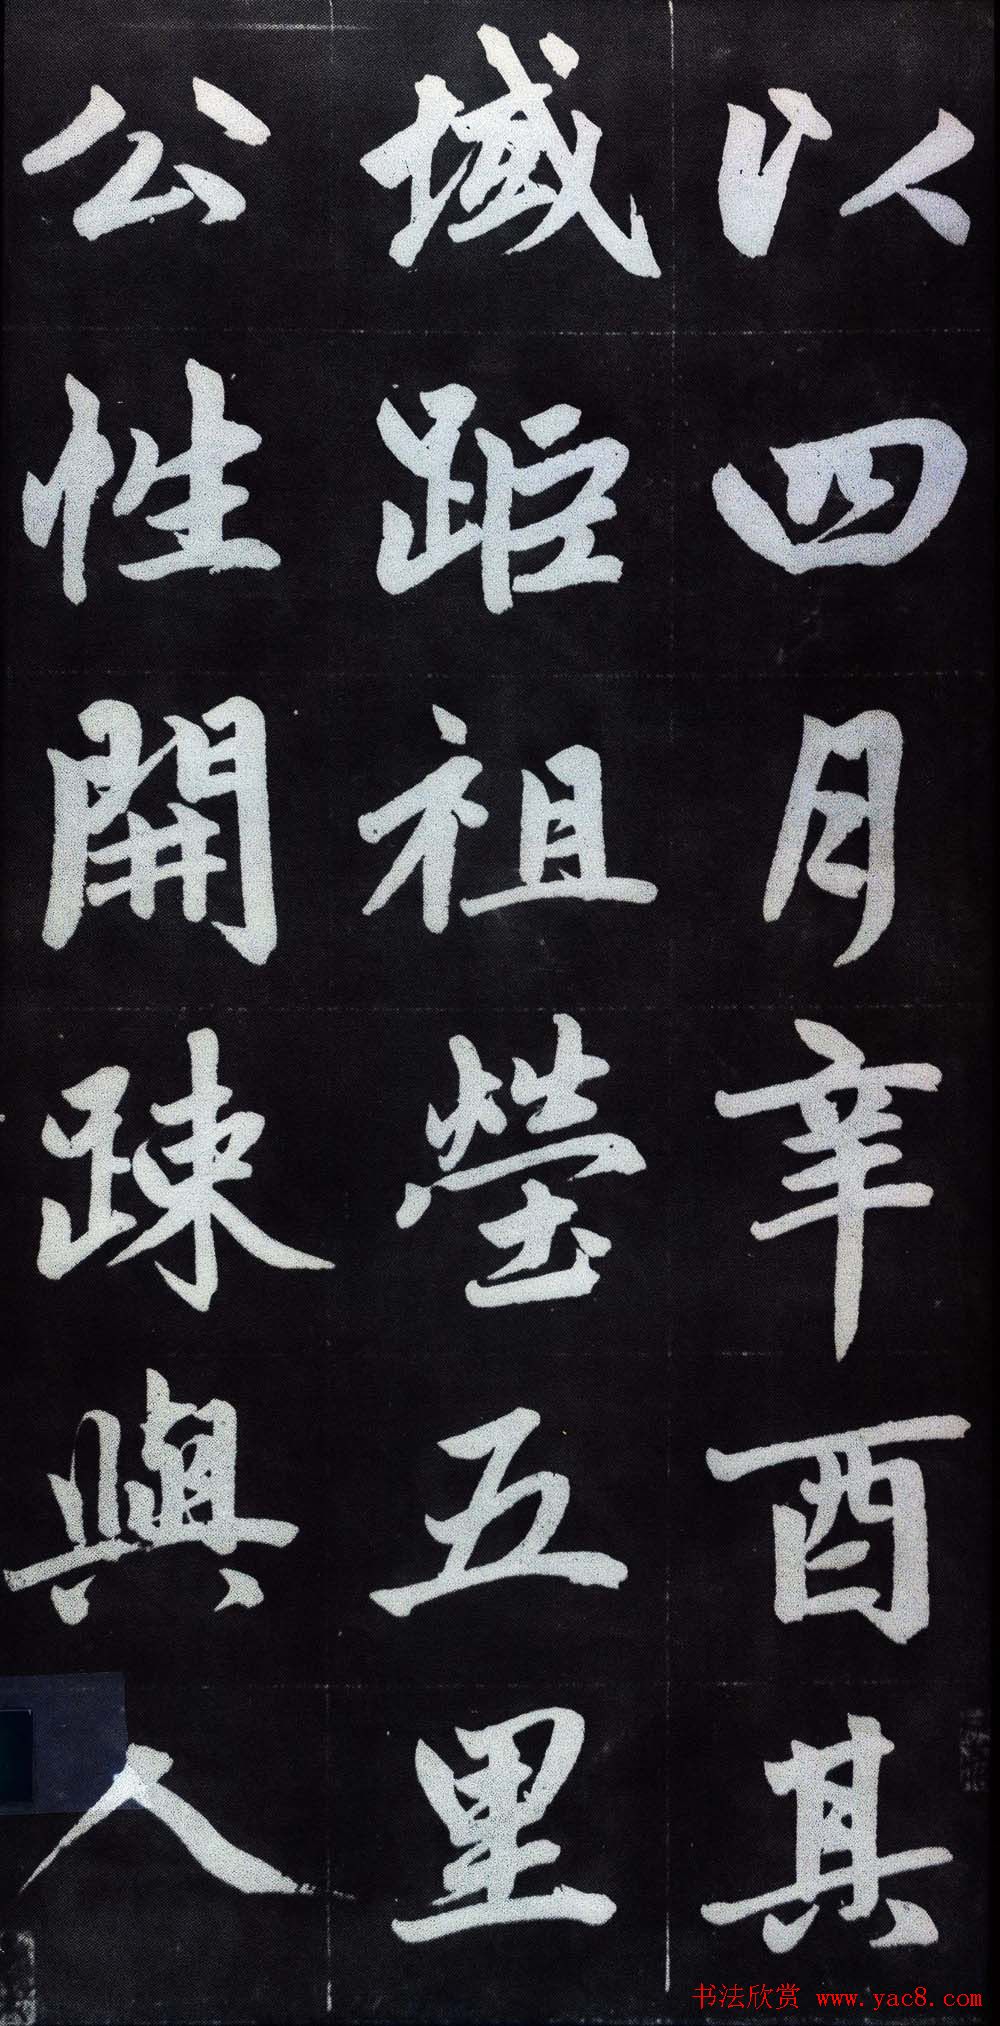 以四月辛酉其
域距祖塋五里
公性開疎與人
书法欣赏 www.yac8.com